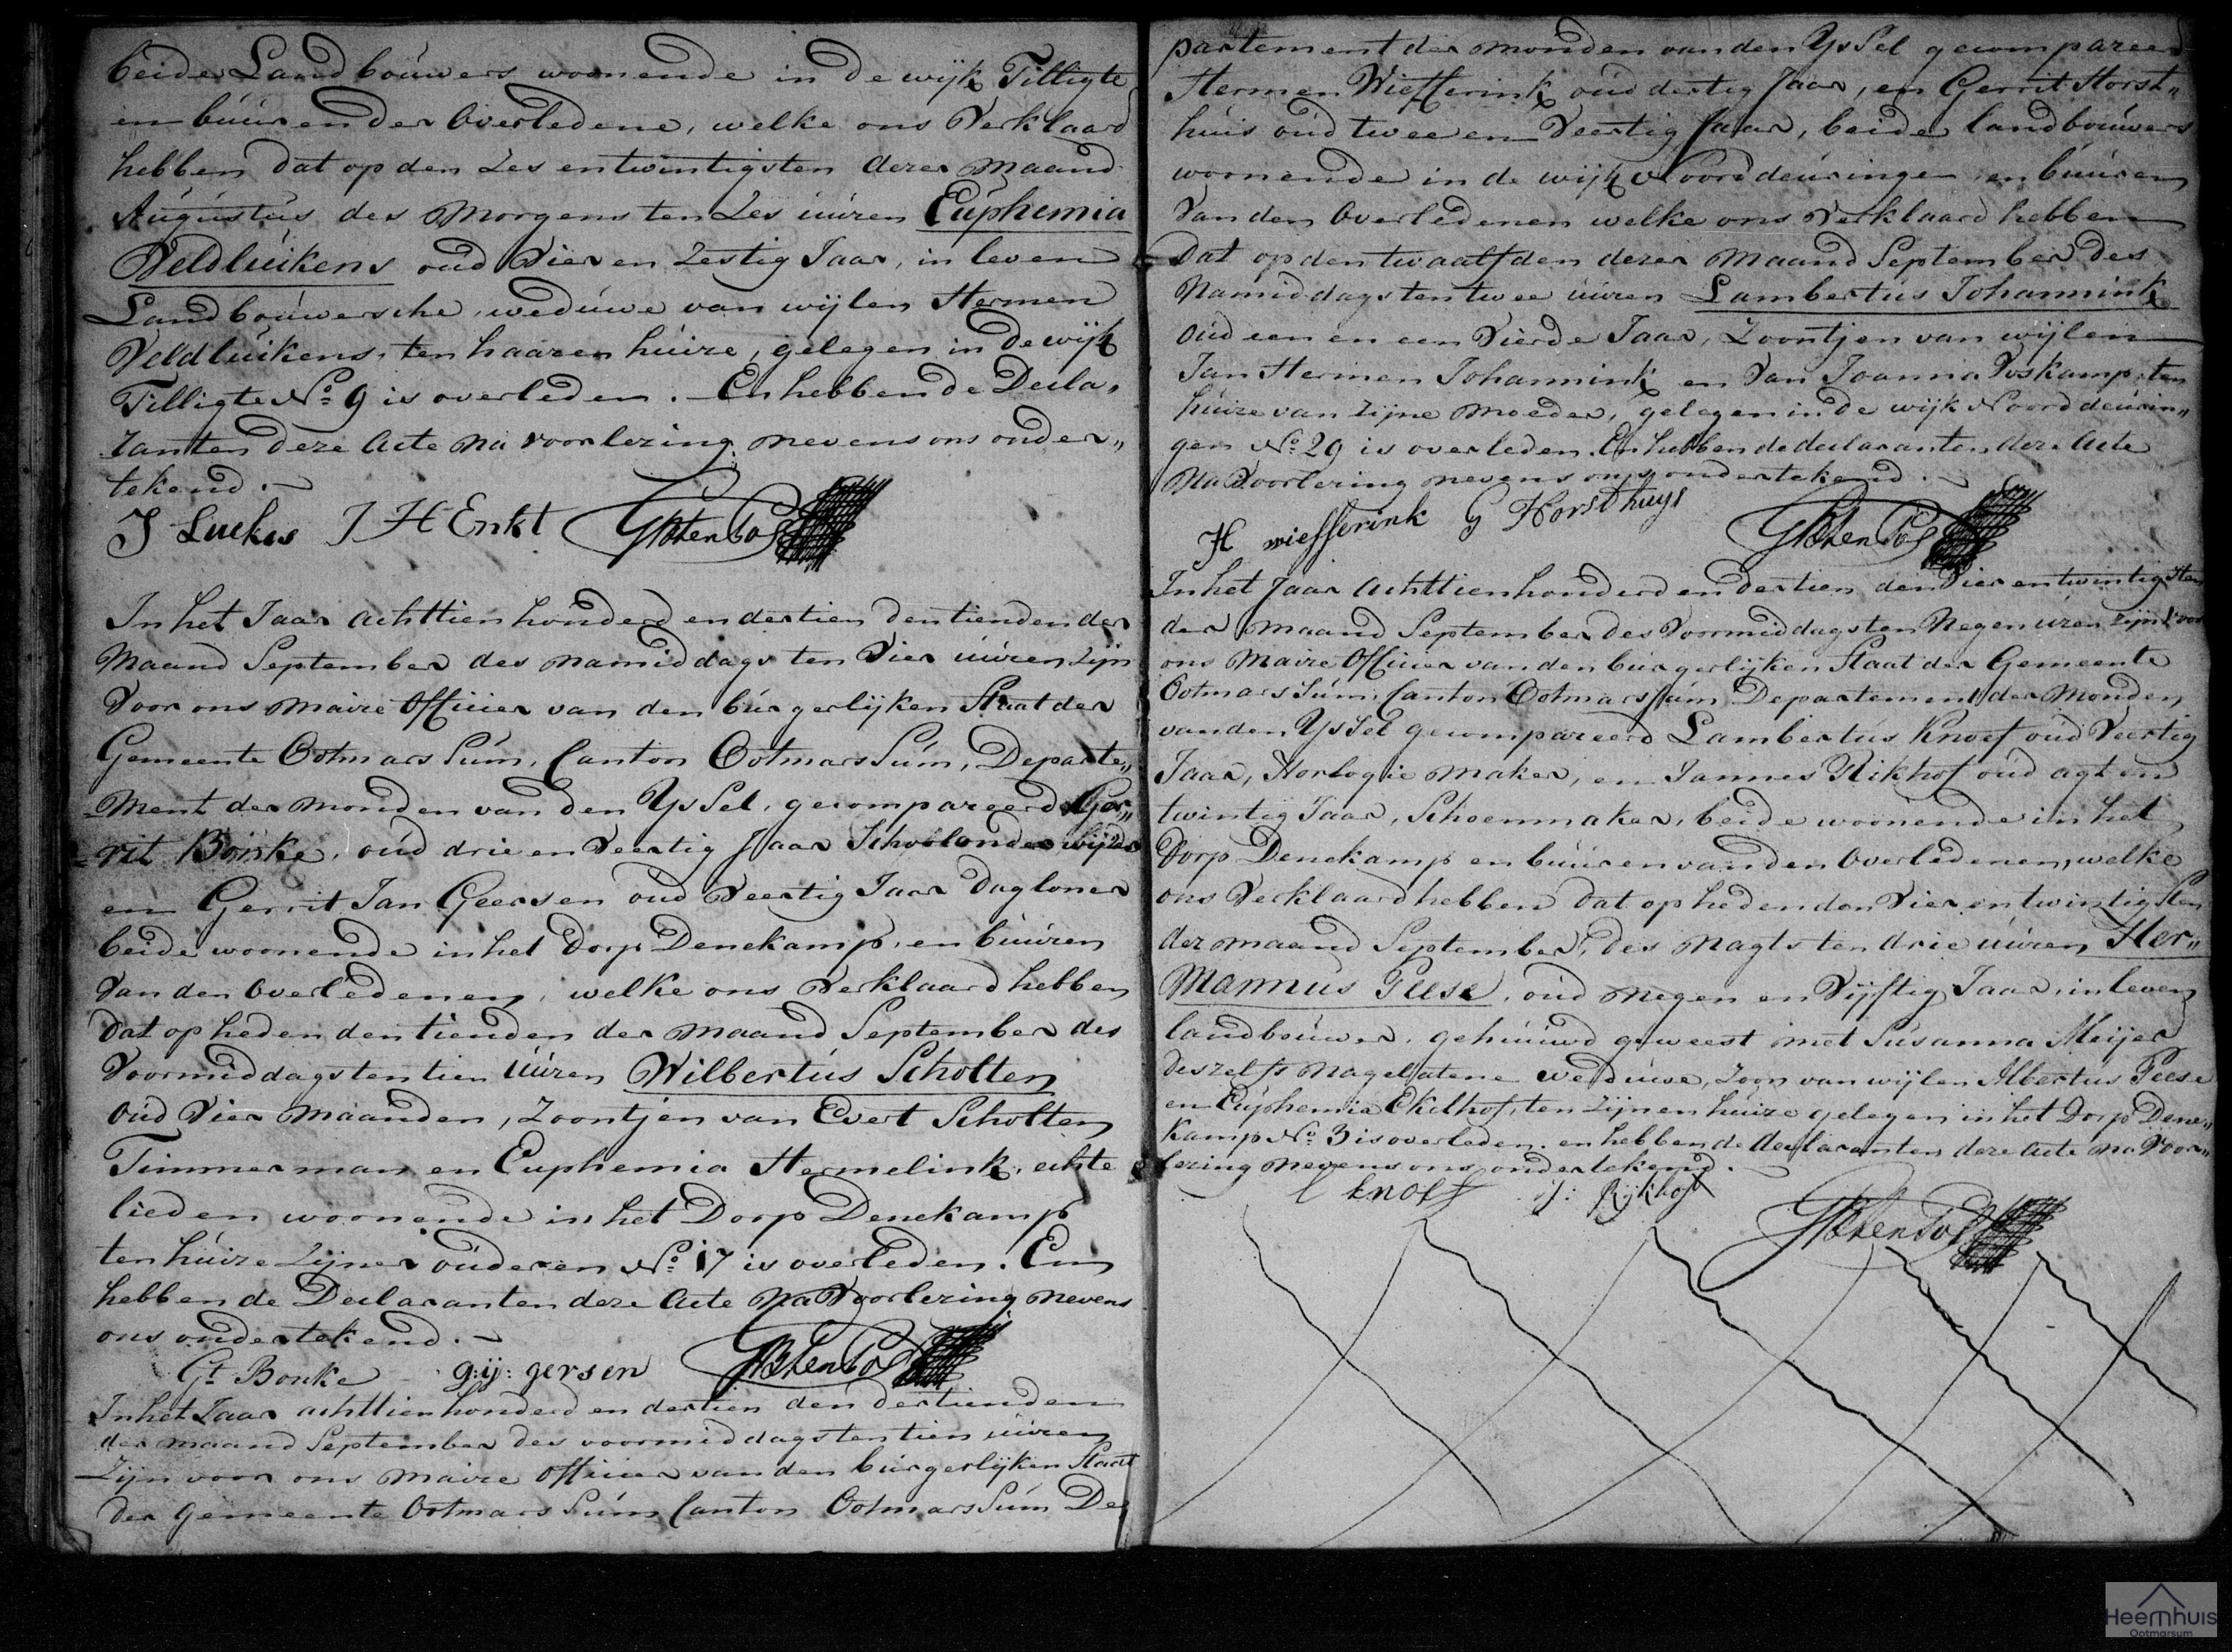 beide Landbouwers woonende in de wijk Tilligte
en buuren der Overledene, welke ons Verklaard
hebben dat op den Zes entwintigsten dezer maand
Augustus des Morgens ten Zes uuren Euphemia
Veldluikens oud Vier en Zestig Jaar, in leven
Landbouwersche, weduwe van wijlen Hermen
Veldluikens, ten haaren huize, gelegen in de wijk
Tilligte No 9 is overleden. En hebben de Decla„
ranten deze Acte na voorlezing nevens ons onder„
tekend.
J Luckes J H Enkt
In het Jaar Achttien honderd en dertien den tienden der
Maand September des namiddags ten Vier uuren zijn
Voor ons Maire Officier van den burgerlijken Staat der
Gemeente Ootmarssum, Canton Ootmarssum, Departe„
ment der monden van den Yssel, gecompareerd Ger„
rit Bonke, oud drie en Veertig Jaar Schoolonderwijzer
en Gerrit Jan Geersen oud Veertig Jaar Dagloner
beide woonende in het Dorp Denekamp, en buuren
Van den Overledenen, welke ons Verklaard hebben
dat op heden den tienden der maand September des
Voormiddags ten tien uuren Wilbertus Scholten
oud Vier maanden, Zoontjen van Evert Scholten
Timmerman en Euphemia Hermelink, echte
lieden woonende in het Dorp Denekamp
ten huize Zijner ouderen No 17 is overleden. En
hebben de Declaranten deze Acte Na Voorlezing nevens
ons ondertekend.
Gt Bonke g:ij: gersen
In het Jaar achttienhonderd en dertien den dertienden
der maand September des voormiddags ten tien uuren
Zijn voor ons Maire Officier van den burgerlijken Staat
der Gemeente Ootmarssum Canton Ootmarssum De
partement der monden van den Yssel gecompareerd
Hermen Wiefferink oud dertig Jaar, en Gerrit Horst„
huis oud twee en Veertig Jaar, beide landbouwers
woonende in de wijk Noorddeuringen en buuren
Van den Overledenen welke ons Verklaard hebben
Dat op den twaalfden dezer Maand September des
Namiddags ten twee uuren Lambertus Johannink
oud een en een Vierde Jaar, Zoontjen van wijlen
Jan Hermen Johannink en Van Joanna Voskamp, ten
huize van zijne Moeder, gelegen in de wijk Noorddeurin„
gen No 29 is overleden. En hebben de declaranten deze Acte
Na Voorlezing nevens ons ondertekend.
H wiefferink G Horsthuys
In het Jaar Achttienhonderd en dertien den Vier entwintigsten
der maand September des Voormiddags ten Negen uren zijn voor
ons Maire Officier van den burgerlijken Staat der Gemeente
Ootmarssum, Canton Ootmarssum Departement der Monden
van den Yssel gecompareerd Lambertus Knoef oud Veertig
Jaar, Horlogie maker, en Jannes Rikhof oud agt en
twintig Jaar, Schoenmaker, beide woonende in het
Dorp Denekamp en buuren van den Overledenen, welke
ons Verklaard hebben dat op heden den Vier en twintigsten
der maand September, des Nagts ten drie uuren Her„
mannus Peese, oud negen en Vijftig Jaar, in leven
landbouwer, gehuuwd geweest met Susanna Meijer
deszelfs Nagelatene weduwe, Zoon van wijlen Albertus Peese
en Euphemia Ekelhof, ten zijnen huize gelegen in het Dorp Dene„
kamp No 3 is overleden. en hebben de declaranten deze Acte na Voor„
lezing nevens ons ondertekend.
l knoef ij: Rijkhof
Heemhuis
Ootmarsum